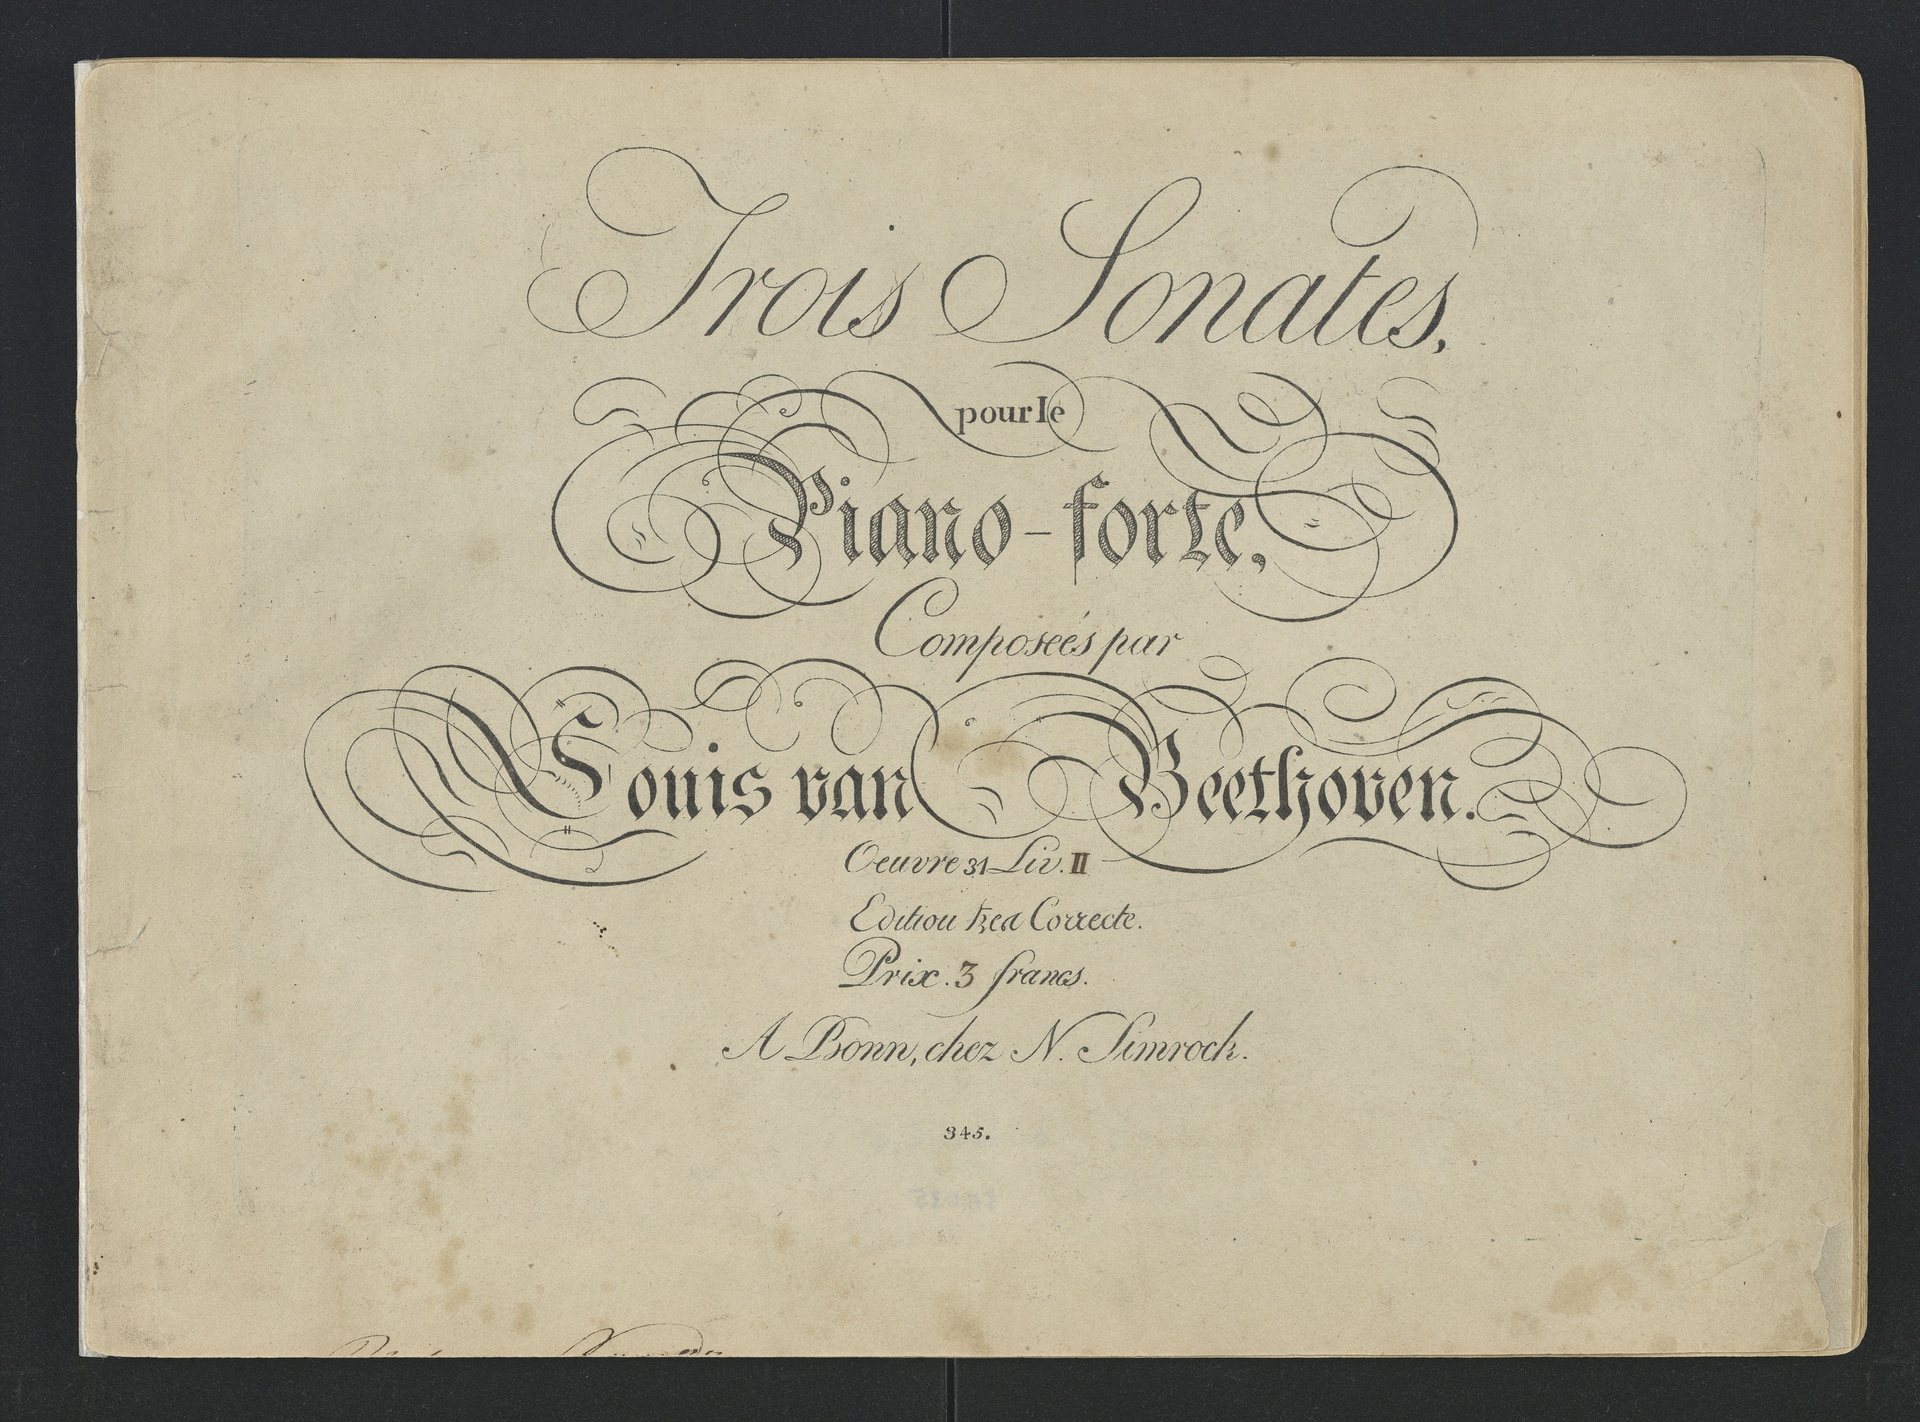 Trois Sonates,
pour le
Piano-forte,
Composeés par
Louis van Beethoven.
Oeuvre 31 Liv. II
Edition tres Correcte.
Prix. 3 francs.
A Bonn, chez N. Simrock.
345.